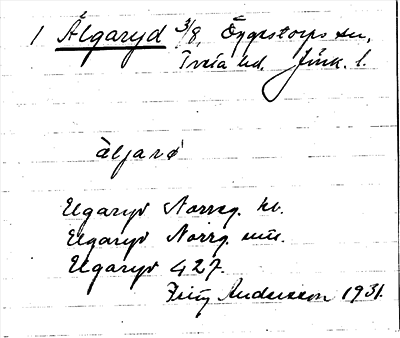 1 Älgaryd 3/8, Öggestorps sn,
Tveta hd. Jönk. l.
äljarö
Elgaryd Norreg. hl.
Elgaryd Norrg. mm.
Elgaryd 427.
Andersson 1931.